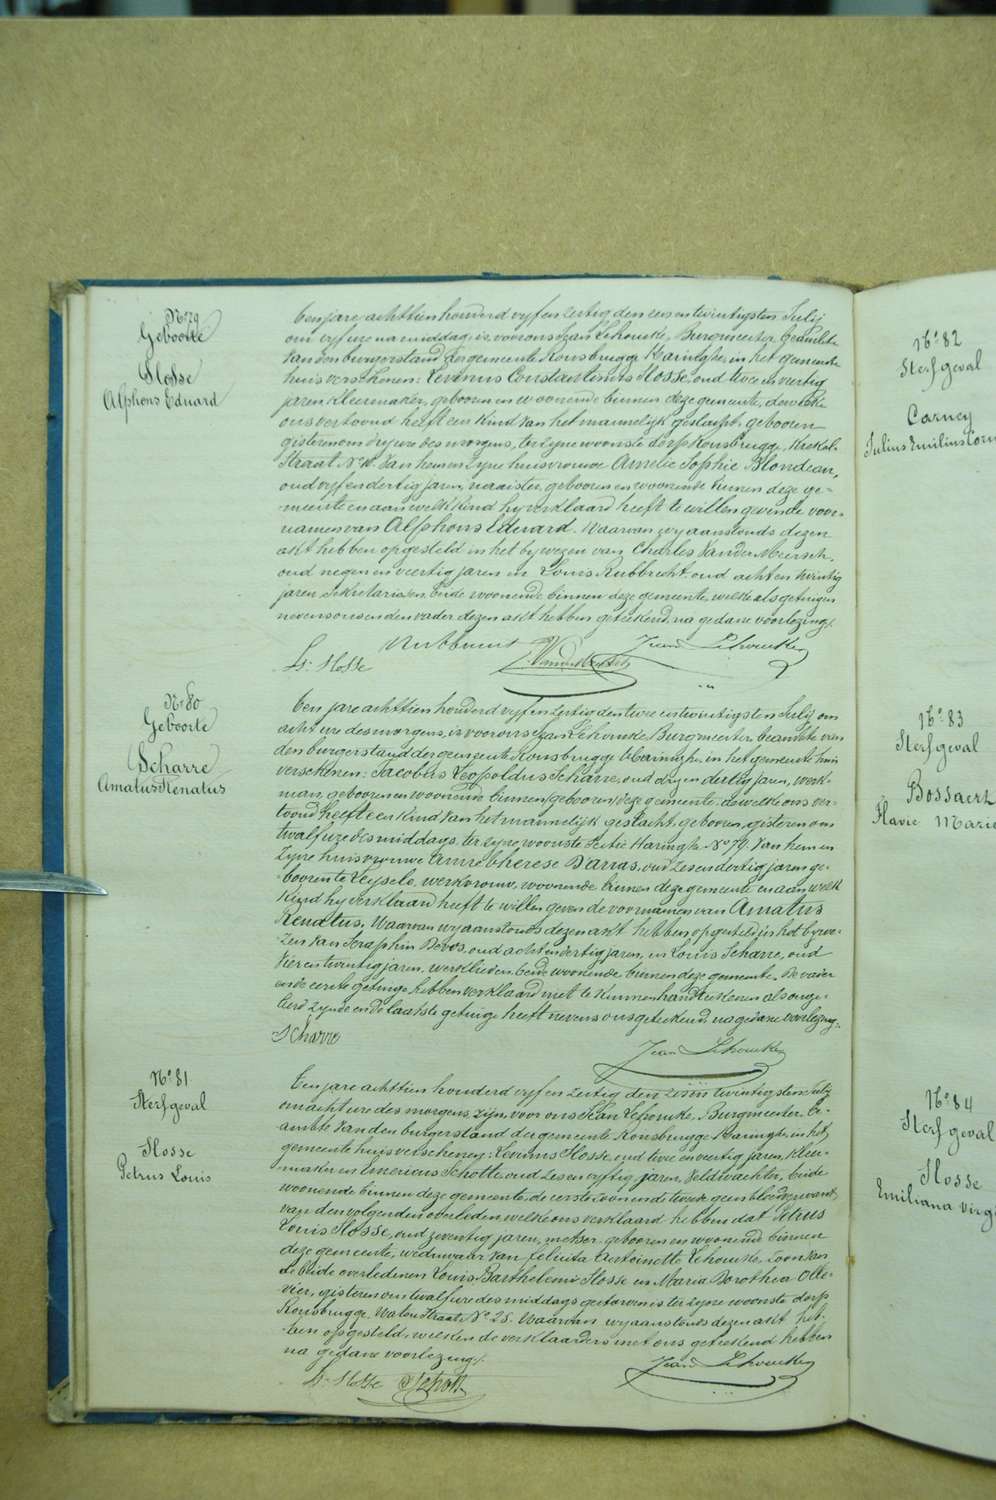 No 79
Geboorte
Hosse
Alphons Eduard
Een jare achttien honderd vyf en zestig den zes en twintigsten July
om vyf ure na middag, is voor ons Jean Lehoucke, Burgmeester, Beambte
van den burgerstand der gemeente Ronsbrugge Haringhe, in het gemeente
huis verschenen: Levinus Constantinus Hosse, oud twee en veertig
jaren, kleermaker, geboren en woonende binnen deze gemeente, dewelke
ons vertoond heeft een kind van het mannelyk geslacht, geboren
gisteren om dry ure des morgens, ter zyne woonste dorp Ronsbrugge,
Straat, No van hem en zyne huisvrouwe Amelie Sophie Blondeau,
oud vyf en dertig jaren, naaister, geboren en woonende binnen deze ge-
meente en aan welk kind hy verklaard heeft te willen geven de voor-
namen van Alphons Eduard. Waarvan wy aanstonds dezen
akt hebben opgesteld in het bywezen van Charles Vander Meersch,
oud negen en veertig jaren en Louis Rubbrecht, oud acht en twintig
jaren, beide woonende binnen deze gemeente, welke als getuigen
nevens ons en den vader dezen akt hebben geteekend, na gedane voorlezing.
Rubbrecht
Jean Lehoucke
Ls Hosse
No 80
Geboorte
Scharre
Amatus Renatus
Een jare achttien honderd vyf en zestig den twee en twintigsten July om
acht ure des morgens, is voor ons Jean Lehoucke Burgmeester, beambte van
den burgerstand der gemeente Ronsbrugge Haringhe, in het gemeente huis
verschenen: Jacobus Leopoldus Scharre, oud dry en dertig jaren, werk-
man, geboren en woonende binnen (geboren) deze gemeente, dewelke ons ver-
toond heeft een kind van het mannelyk geslacht, geboren gisteren om
twalf ure des middags, ter zyne woonste Sectie Haringhe No 79, van hem en
zyne huisvrouwe Anne Therese Darras, oud zes en dertig jaren, ge-
boren te Leysele, werkvrouw, woonende binnen deze gemeente en aan welk
kind hy verklaard heeft te willen geven de voornamen van Amatus
Renatus. Waarvan wy aanstonds dezen akt hebben opgesteld in het bywe-
zen van Seraphin Devos, oud acht en dertig jaren, en Louis Scharre, oud
vier en twintig jaren, werklieden, beide woonende binnen deze gemeente. De vader
en de eerste getuige hebben verklaard niet te kunnen handteekenen als onge-
leerd zynde en de laatste getuige heeft nevens ons geteekend, na gedane voorlezing.
Scharre
Jean Lehoucke
No 81
Sterfgeval
Hosse
Petrus Louis
Een jare achttien honderd vyf en zestig den zes en twintigsten July
om acht ure des morgens, zyn voor ons Jean Lehoucke, Burgmeester, Be-
ambte van den burgerstand der gemeente Ronsbrugge Haringhe, in het
gemeente huis verschenen: Levinus Hosse, oud twee en veertig jaren, kleer-
maker en Emericus Schotte, oud zes en vyftig jaren, veldwachter, beide
woonende binnen deze gemeente, de eerste zoon en de tweede geen bloedverwant
van den volgenden overleden, welke ons verklaard hebben dat Petrus
Louis Hosse, oud zeventig jaren, metser, geboren en woonende binnen
deze gemeente, weduwaar van Felicita Antoinette Lehoucke, zoon van
de beide overledenen Louis Barthelemi Hosse en Maria Dorothea Olle-
vier, gisteren om twalf ure des middags gestorven is ter zyne woonste dorp
Ronsbrugge, Waten straat No 25. Waarvan wy aanstonds dezen akt heb-
ben opgesteld, welken de verklaarders met ons geteekend hebben
na gedane voorlezing.
Ls Hosse
Jean Lehoucke
No 82
Sterfgeval
Carney
Julius Emilius
No 83
Sterfgeval
Bossaert
Flavie Marie
No 84
Sterfgeval
Hosse
Emiliana